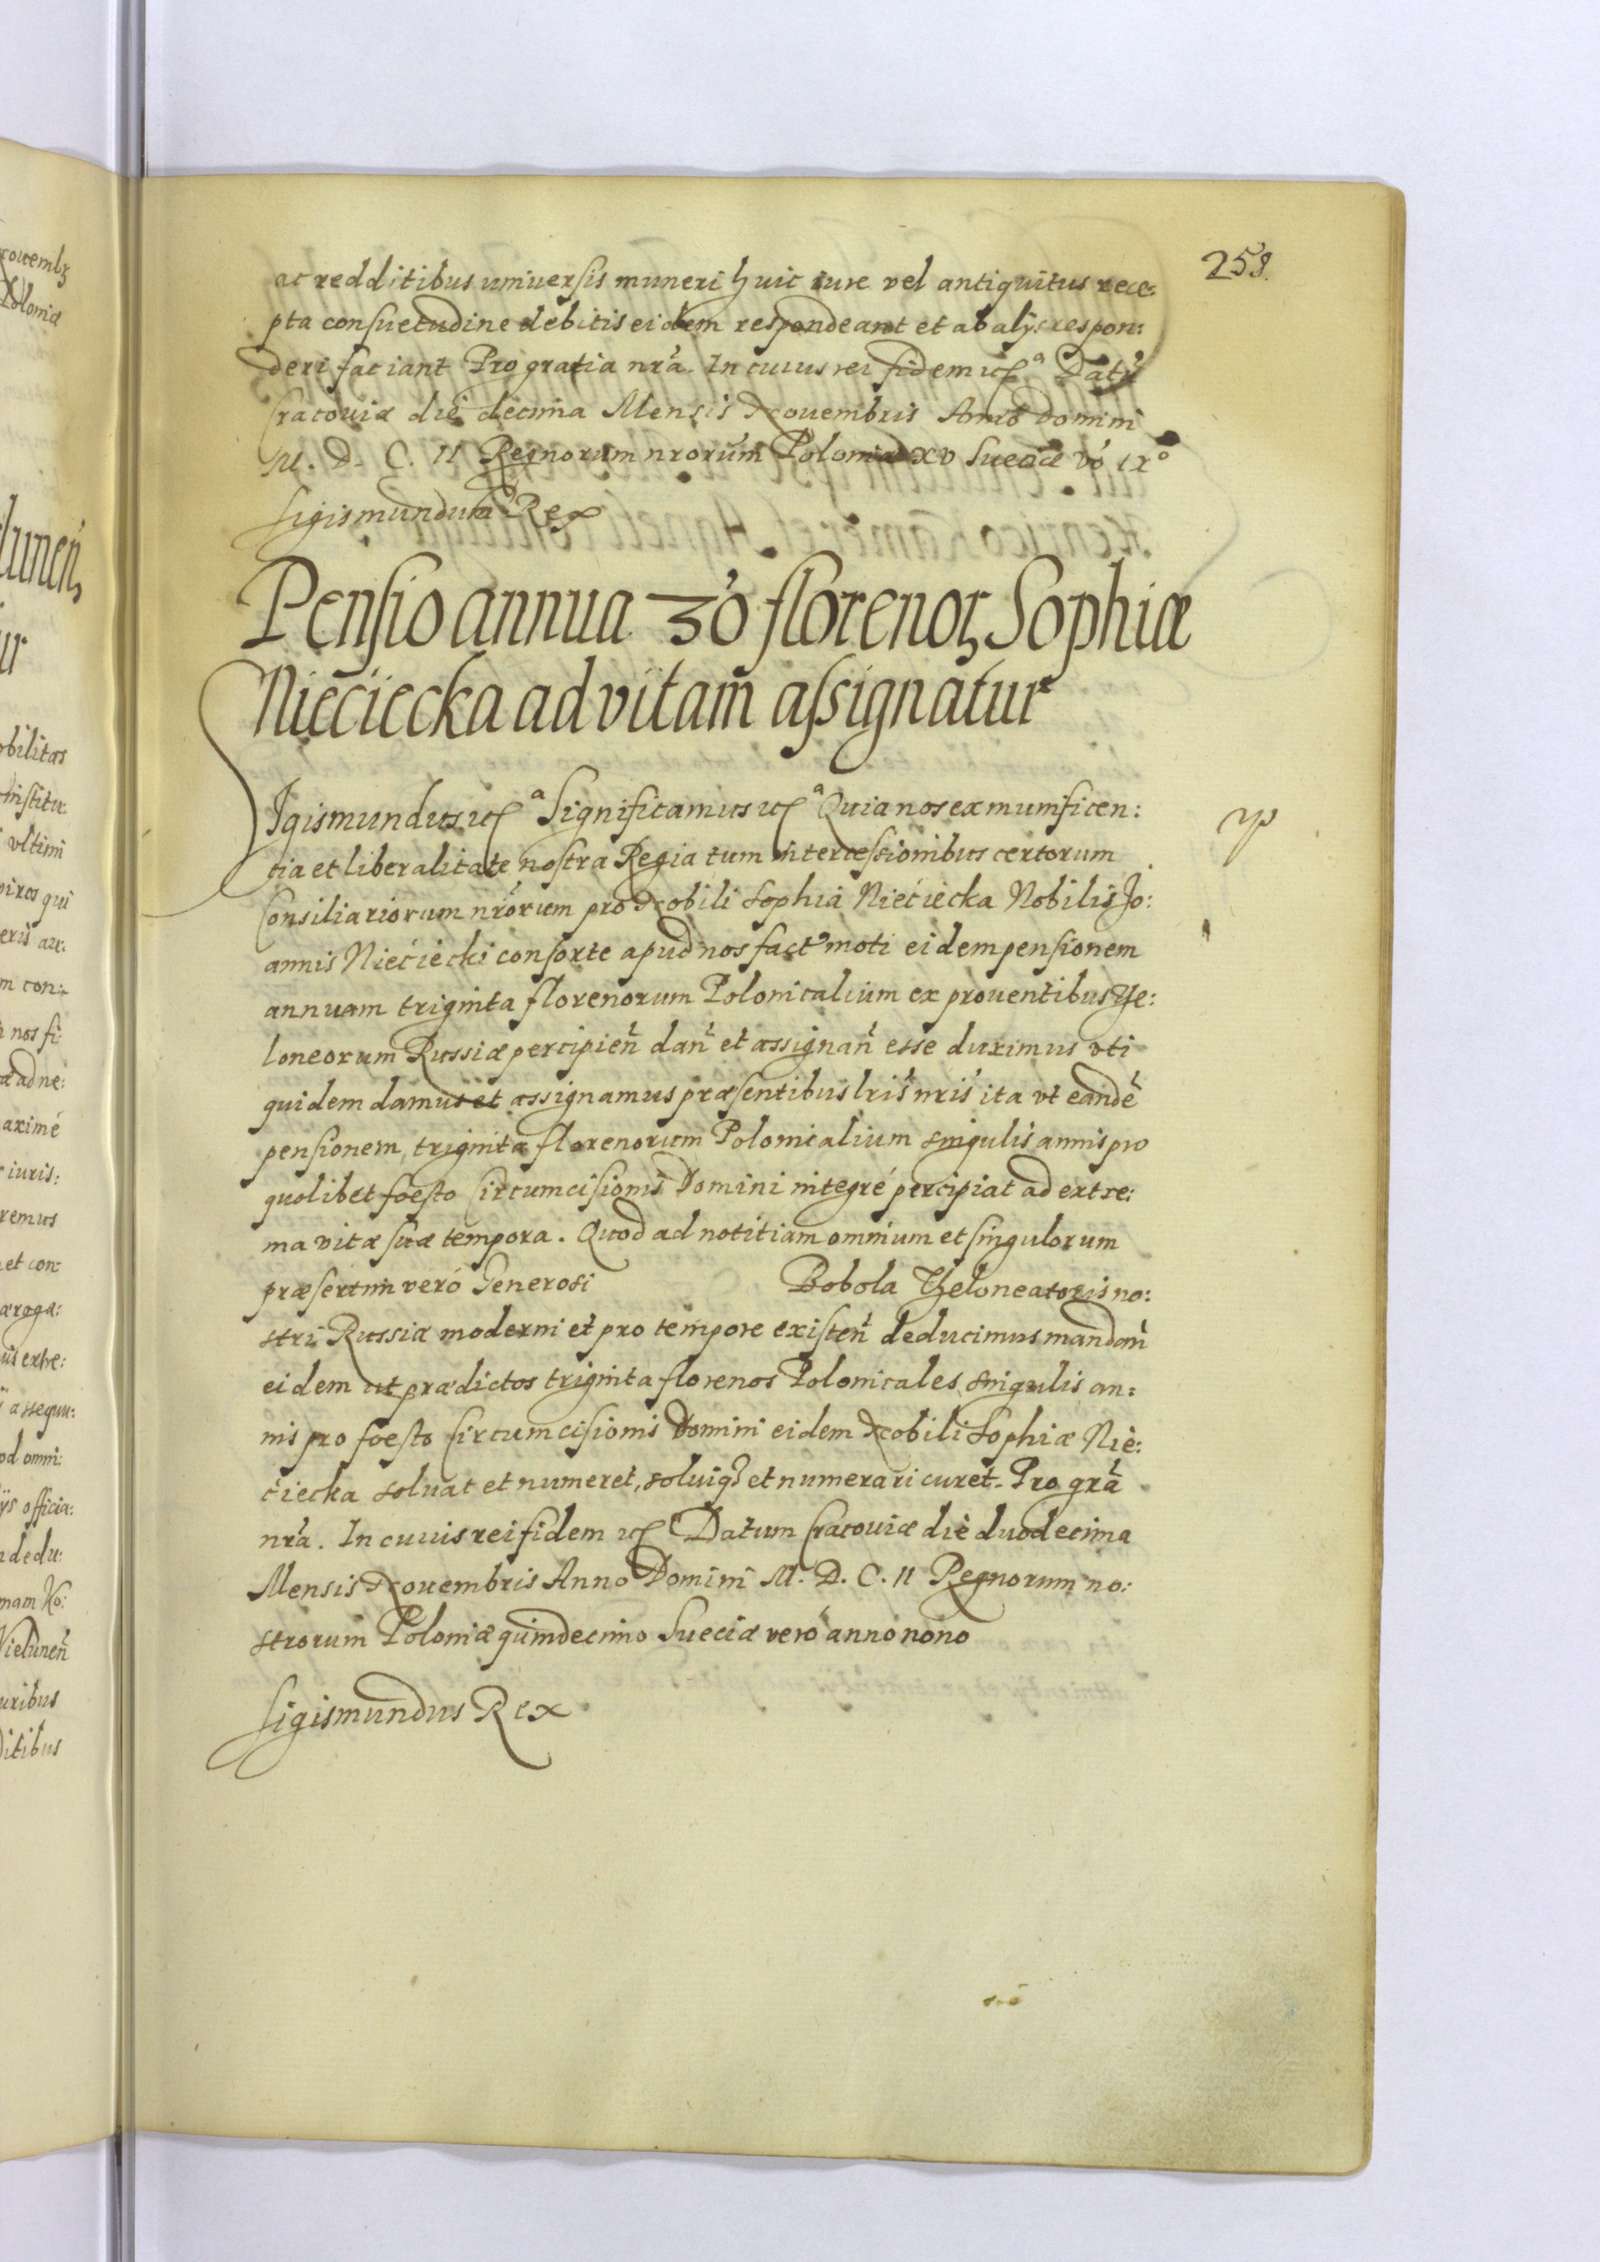 258.
ac redditibus universis muneri huic iure vel antiquitus rece:
pta consuetudine debitis eidem respondeant et ab alijs respon:
deri faciant Pro gratia nrã. In cuius rei fidem etc̃ᵃ Datũ
Cracoviæ die decima Mensis Novembris Anno Domini
M. D. C. II Regnorum nrorum Poloniæ XV Sueciæ vó IXº
Sigismundus Rex
Pensio annua 30 florenoꝝ Sophiæ
Niecieċka ad vitam assignatur
Sigismundus etcᵃ Significamus etcᵃ Quia nos ex munificen:
tia et liberalitate nostra Regia tum intercessionibus certorum
Consiliariorum nrórum pro Nobili Sophia Niećiecka Nobilis Jo:
annis Niećiecki consorte apud nos fact' moti eidem pensionem
annuam triginta florenorum Polonicalium ex proventibus The:
loneorum Russiæ percipień dań et assignań esse duximus vti
quidem damus et assignamus præsentibus lris nris ita vt eandẽ
pensionem triginta florenorum Polonicalium singulis annis pro
quolibet foesto Circumcisionis Domini integré percipiat ad extre:
ma vitæ suæ tempora. Quod ad notitiam omnium et singulorum
præsertim veró Generosi Bobola Theloneatoris no:
stri Russiæ moderni et pro tempore existeń deducimus mandań
eidem ut prædictos triginta florenos Polonicales singulis an:
nis pro foesto Circumcisionis Domini eidem Nobili Sophiæ Nie:
ćiecka soluat et numeret, soluiq; et numerari curet. Pro grã
nrã. In cuius rei fidem etc Datum Cracoviæ die duodecima
Mensis Novembris Anno Domini M. D. C. II Regnorum no:
strorum Poloniæ quindecimo Sueciæ veró anno nono
Sigismundus Rex